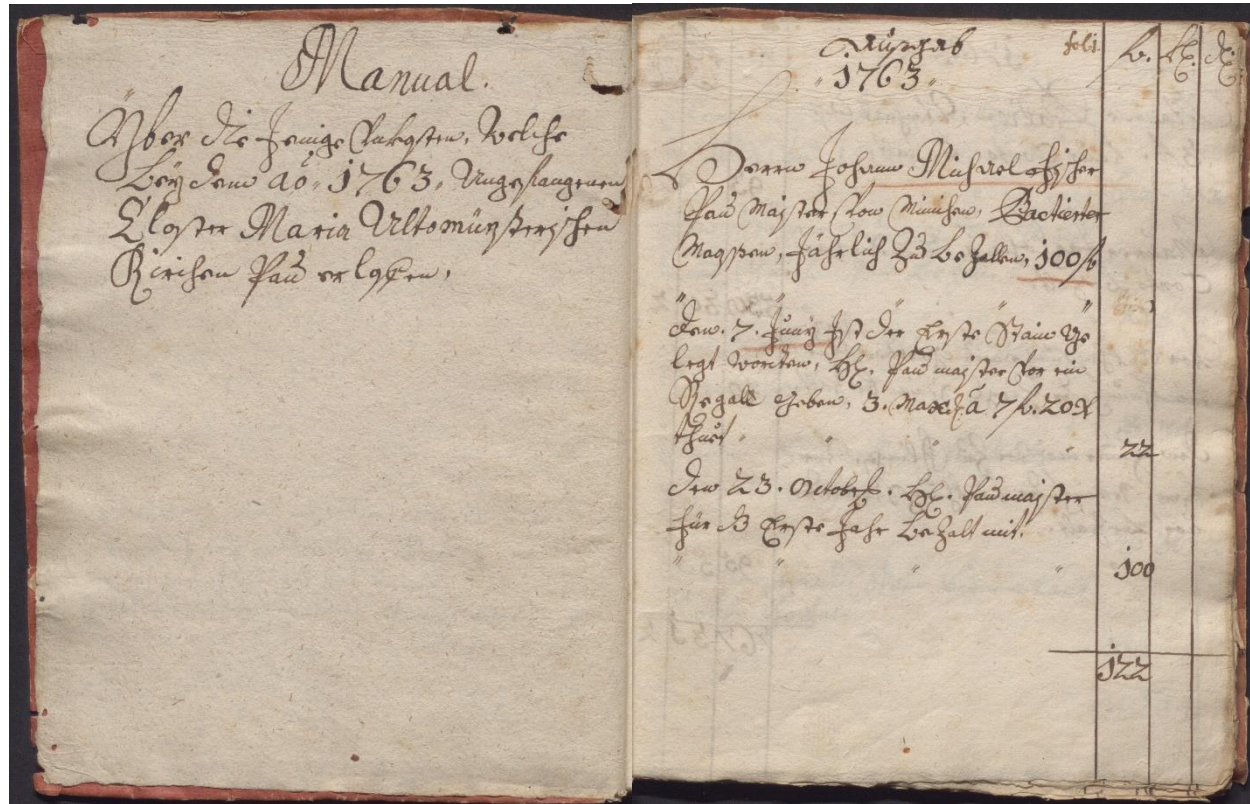 Manual.
Yber die Jenige Unkosten, Welche
Beÿ dem aõ. 1763. Angefangenen
Closter Maria Altomünsterischen
Kirchen Pau erloffen.
Ausgab fol. 1.
1763 fl. kr. dl.
Herrn Johann Michael Fischer
Pau Maister Von Minichen, Pactierter
Massen, Jährlich Zu bezallen, 100 fl
den. 7. Junÿ Ist der Erste Stain Ge
legt worden, H: Paumaister Vor ein
Regall geben, 3. Max d: à 7 fl. 20 x
thuet 22
den 23. Octobr. H: Paumaister
für ds Erste Jahr bezalt mit.
100
122